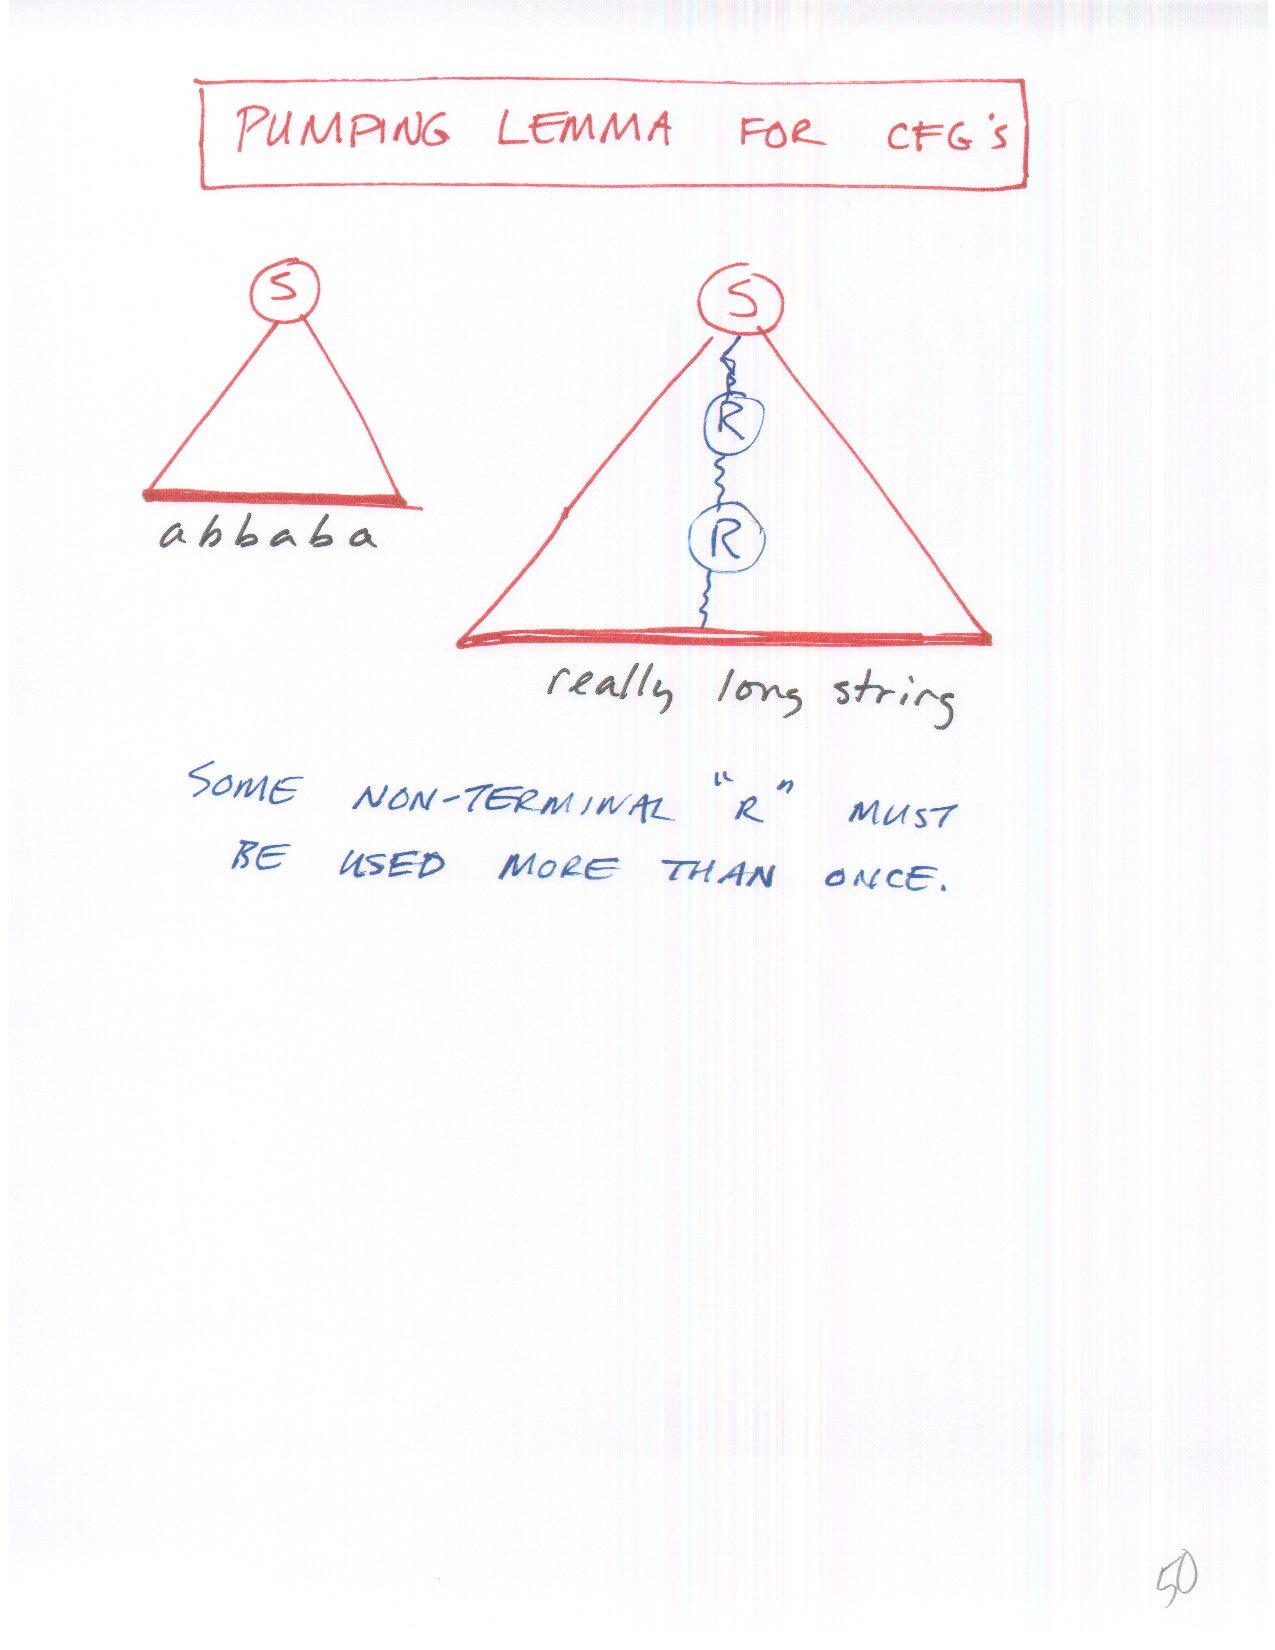 PUMPING LEMMA FOR CFG's
S
S
R
R
abbaba
really long string
SOME NON-TERMINAL "R" MUST
BE USED MORE THAN ONCE.
50